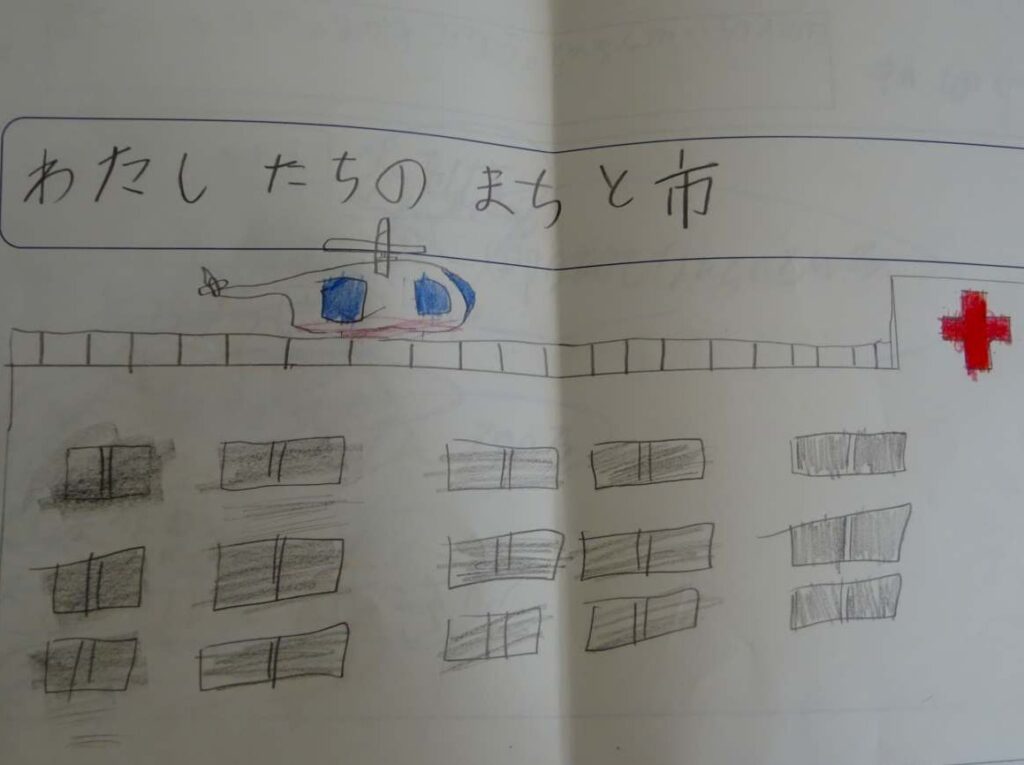 わたしたちのまちと市